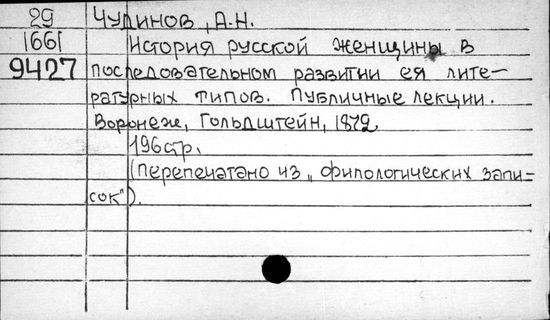 29 Чудинов, А.Н.
1661 История русской женщины в
9427 последовательном развитии ея лите-
ратурных типов. Публичные лекции.
Воронеж, Гольдштейн, 1872.
196стр.
(Перепечатано из „Филологических запи-
сок").